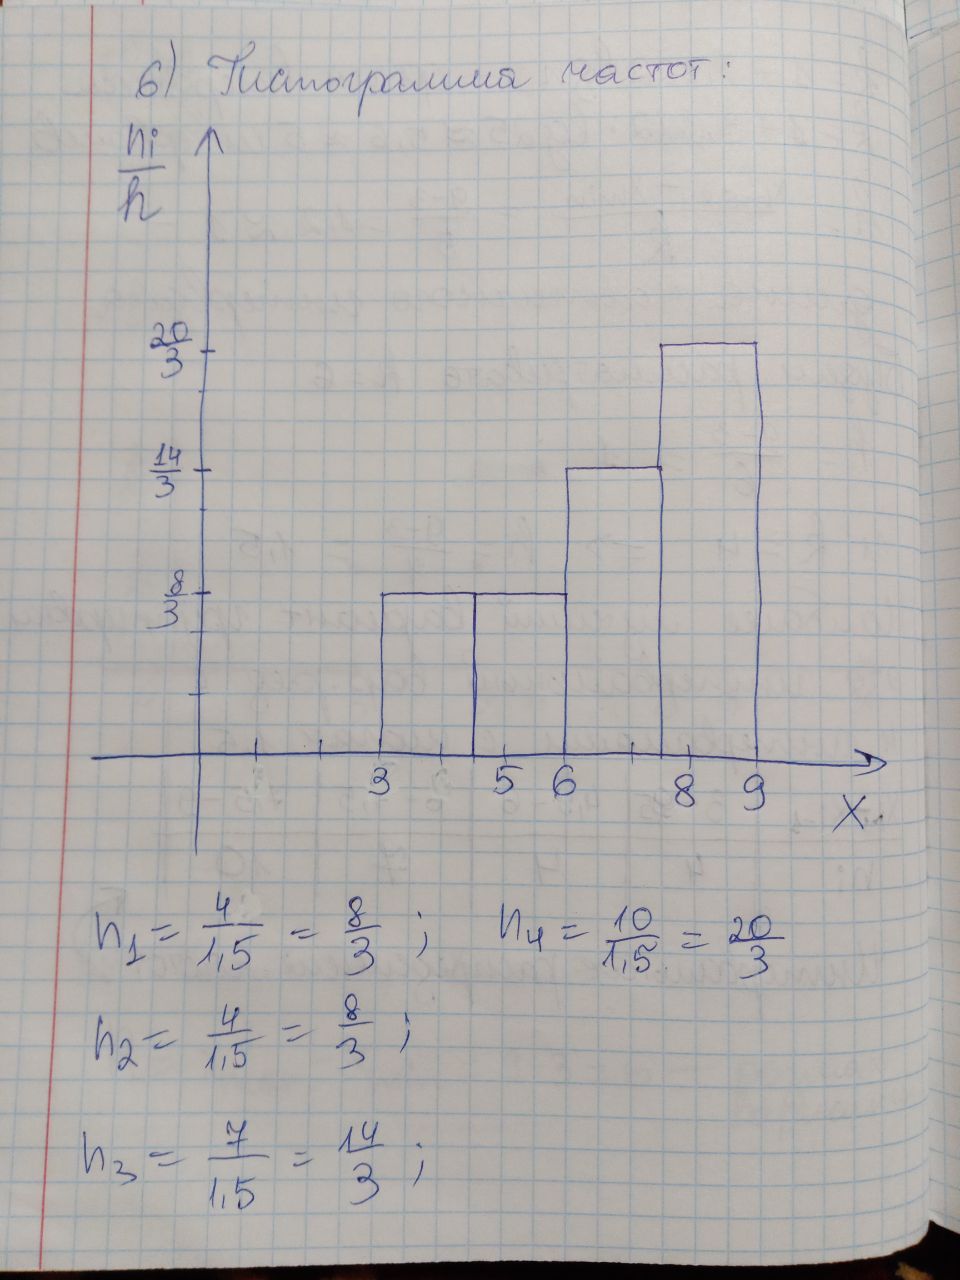 б) Гистограмма частот:
ni/h
20/3
14/3
8/3
3 5 6 8 9
X
n1 = 4/1,5 = 8/3 ; n4 = 10/1,5 = 20/3
n2 = 4/1,5 = 8/3 ;
n3 = 7/1,5 = 14/3 ;